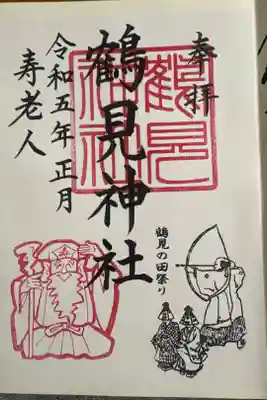 奉拝
鶴見神社
鶴見神社
令和五年正月
寿老人
鶴見の田祭り